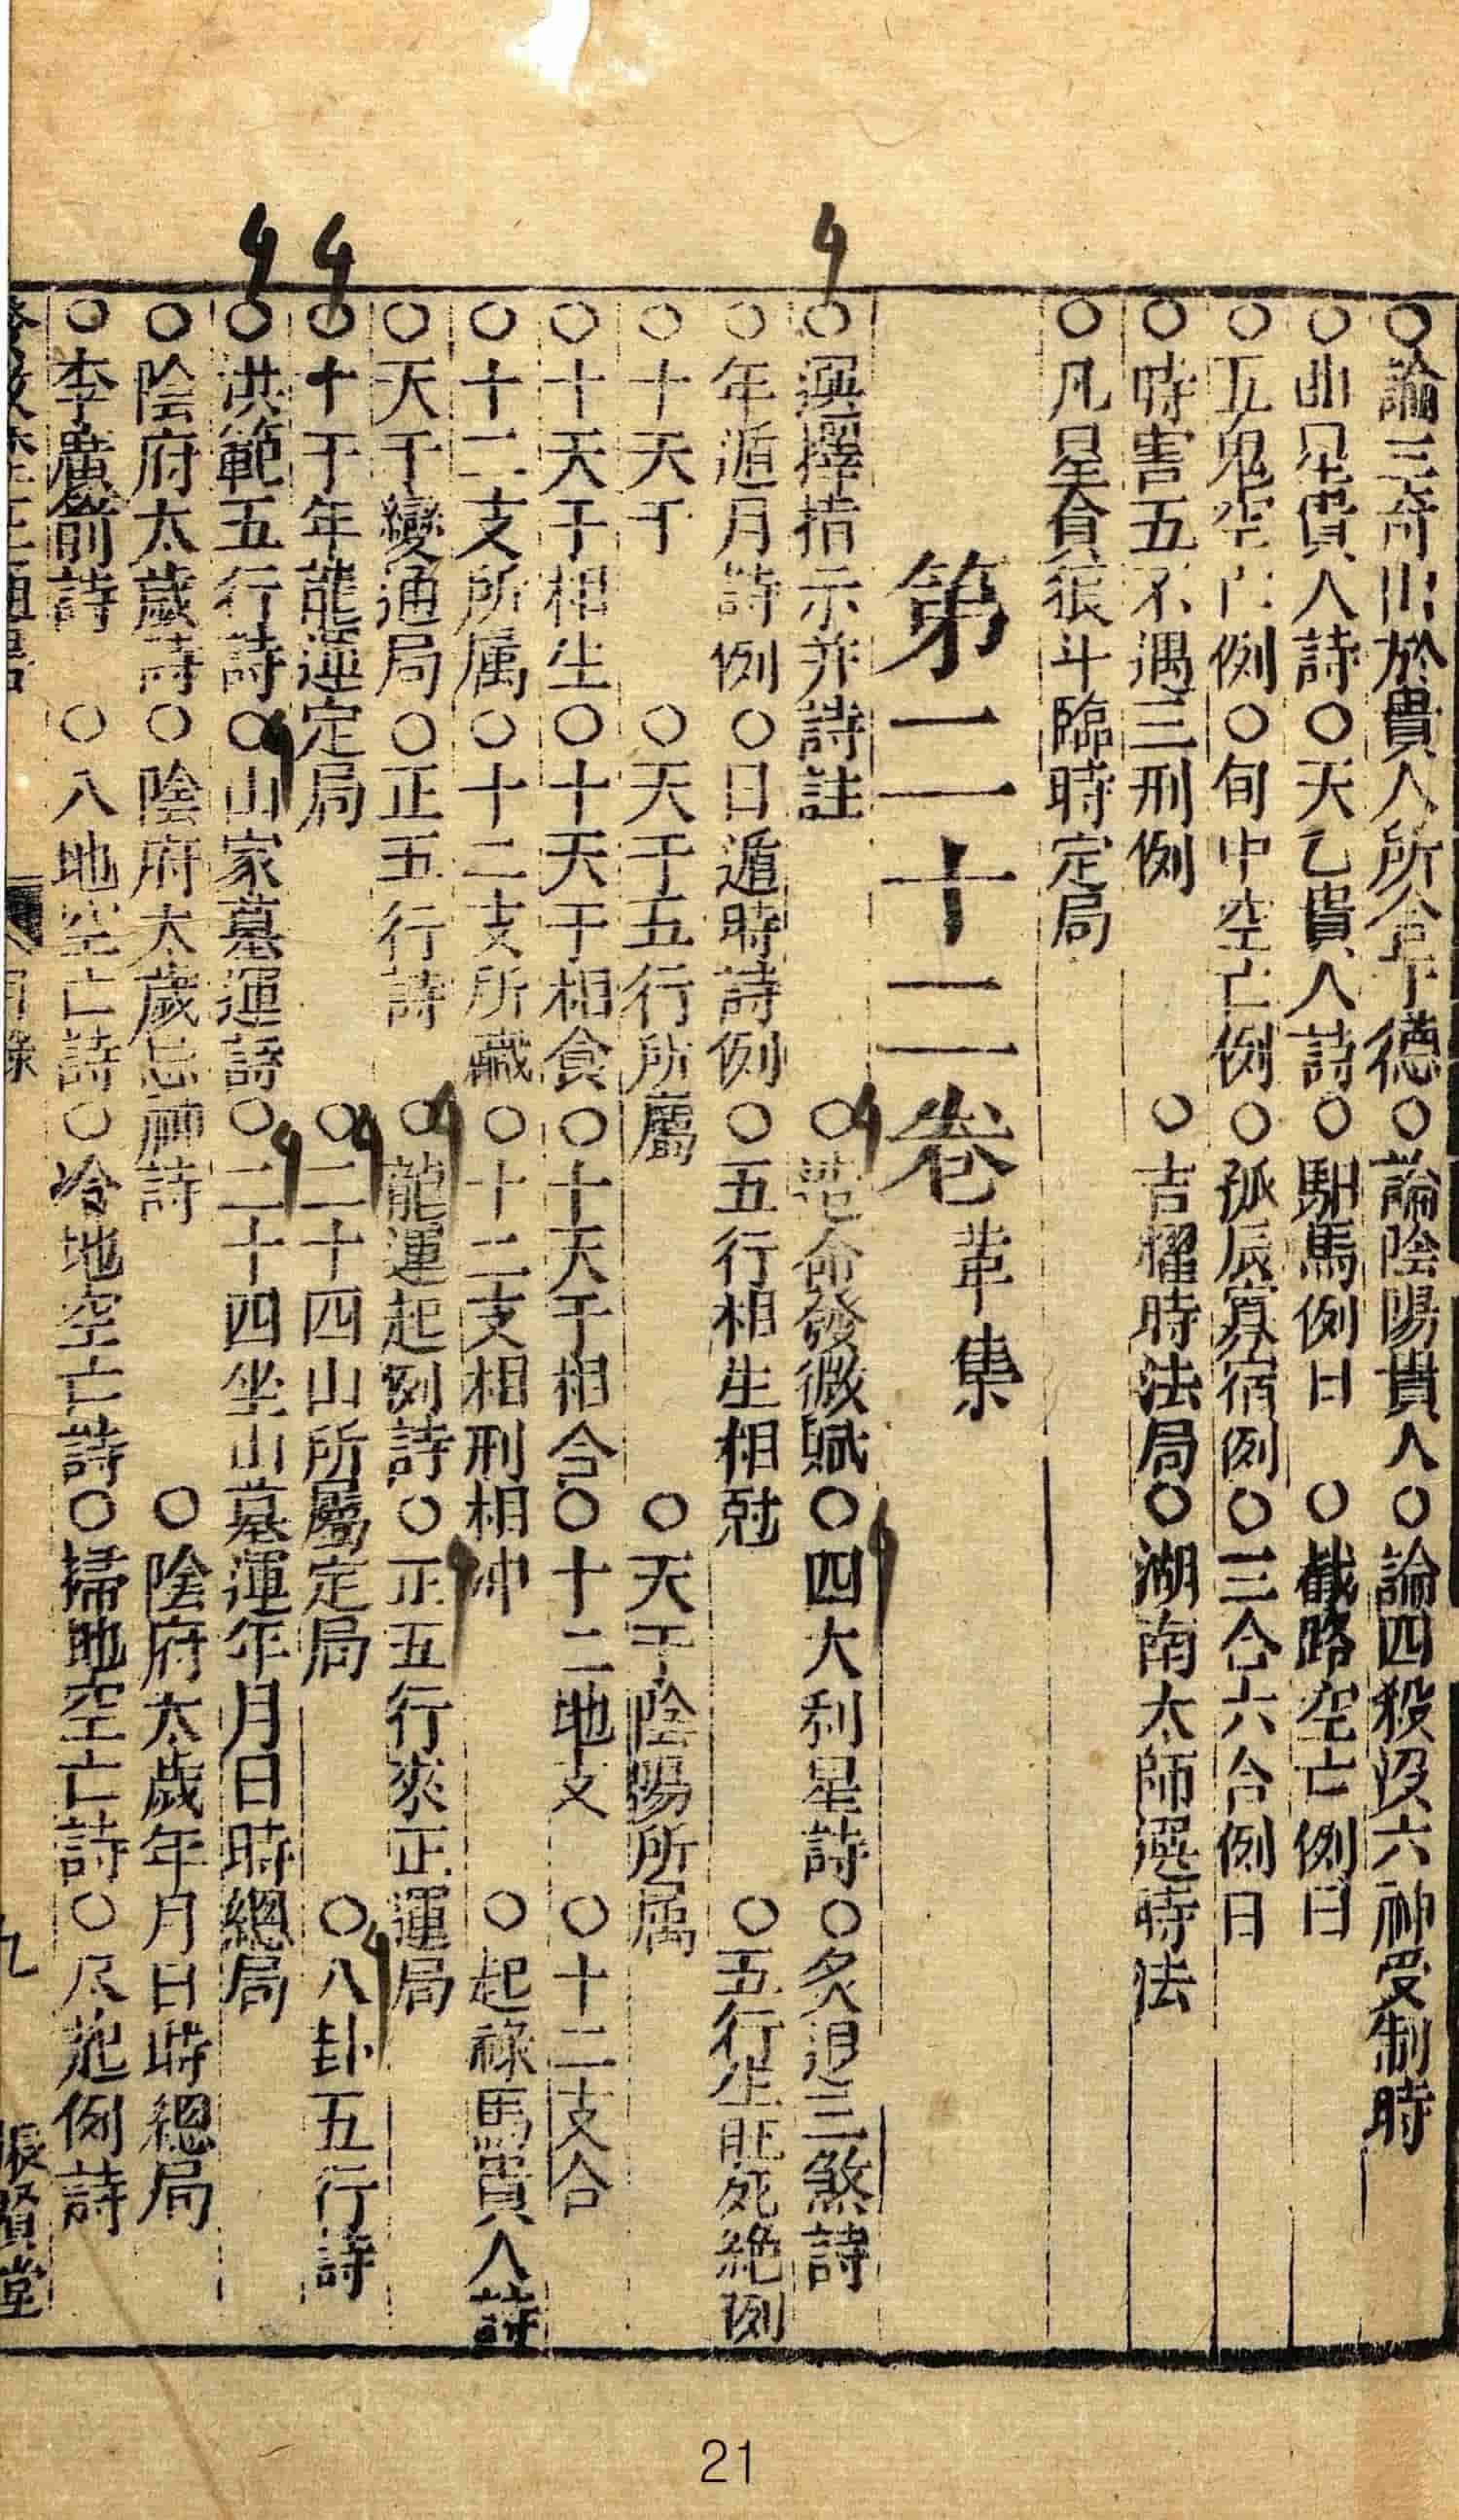 ○論三奇出於貴人所合干德○論陰陽貴人○論四殺沒六神受制時
○曲星貴人詩○天乙貴人詩○馹馬例日○截路空亡例日
○五鬼空亡例○旬中空亡例○孤辰寡宿例○三合六合例日
○時害五不遇三刑例○吉權時法局○湖南太師選時法
○凡星食狼斗臨時定局
第二十二卷 革集
○選擇指示并詩註○造命發微賦○四大利星詩○炙退三煞詩
○年遁月詩例○日遁時詩例○五行相生相尅○五行生旺死絶例
○十天干○天干五行所屬○天干陰陽所属
○十天干相生○十天干相食○十天干相合○十二地支○十二支合
○十二支所属○十二支所藏○十二支相刑相冲○起祿馬貴人詩
○天干變通局○正五行詩○龍運起例詩○正五行來正運局
○十干年龍運定局○二十四山所屬定局○八卦五行詩
○洪範五行詩○山家墓運詩○二十四坐山墓運年月日時總局
○陰府太歲詩○陰府太歲忌神詩○陰府太歲年月日時總局
○李廣箭詩○八地空亡詩○冷地空亡詩○掃地空亡詩○起例詩
通書 目錄 九 賢堂
21